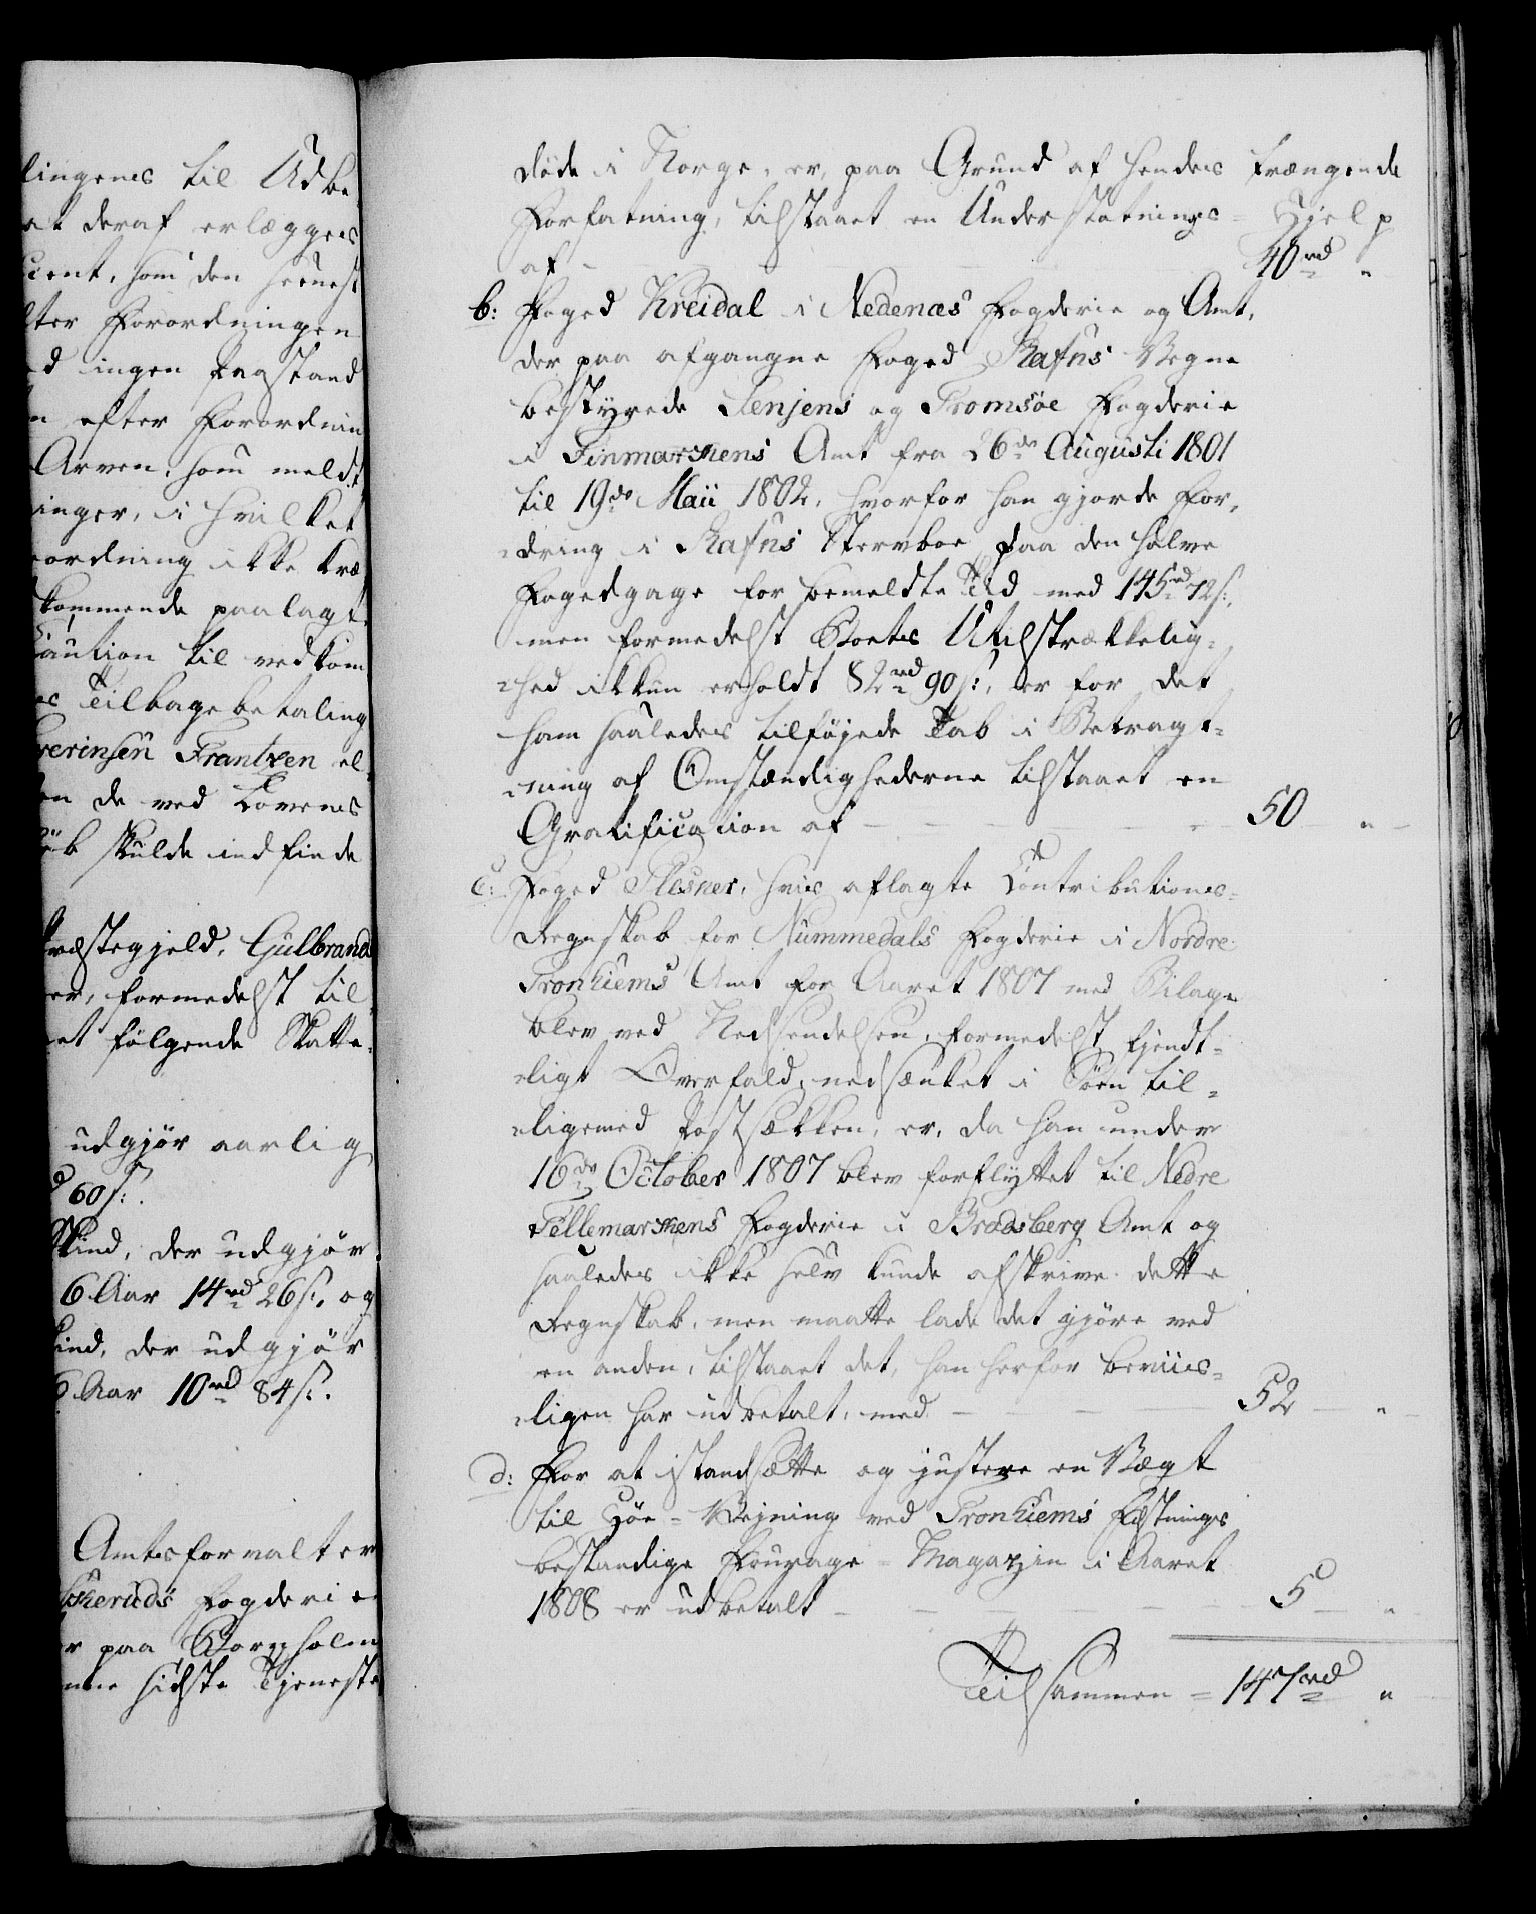 lingenes til Udbe
at deraf erlægges
cent, som den seenest
fter Forordningen
d ingen Paastand
n efter Forordnin
Arven, som meldt
inger, i hvilket
ordning ikke kræ
kommende paalagt
Caution til vedkom
es Tilbagebetaling
Frantzen el
en de ved Lovens
øb skulde indfinde
Præstegjeld, Gulbrand
er, formedelst til
et følgende Skatte
udgjør aarlig
60 s.
Skind, der udgjør
6 Aar 14 rd 26 s. og
ind, der udgjør
6 Aar 10 rd 84 s.
Amtsforvalter
skeruds Fogderie
r paa Bornholm
nne sidste Tjeneste
døde i Norge, er, paa Grund af hendes trængende
Forfatning, tilstaaet en Understøtnings-Hjelp
af - 40 rd "
b: Foged Kreidal i Nedenæs Fogderie og Amt,
der paa afgangne Foged Rafns Vegne
bestyrede Senjens og Tromsöe Fogderie
i Finmarkens Amt fra 26de Augusti 1801
til 19de Maii 1802, hvorfor han gjorde For-
dring i Rafns Stervboe paa den halve
Fogedgage for bemeldte Tid med 145 rd 72 s.,
men formedelst Boets Utilstrækkelig-
hed ikkun erholdt 82 rd 90 s., er for det
ham saaledes tilføjede Tab i Betragt-
ning af Omstændighederne tilstaaet en
Gratification af - 50 "
c: Foged Plesner, hvis aflagte Contributions-
Regnskab for Nummedals Fogderie i Nordre
Tronhiems Amt for Aaret 1807 med Bilage
blev ved Nedsendelsen, formedelst fjendt-
ligt Overfald, nedsænket i Søen til-
ligemed Postsækken, er, da han under
16de October 1807 blev forflyttet til Nedre
Tellemarkens Fogderie i Bradsberg Amt og
saaledes ikke selv kunde afskrive dette
Regnskab, men maatte lade det gjøre ved
en anden, tilstaaet det, han herfor beviis-
ligen har udbetalt, med - 52 "
d: For at istandsætte og justere en Vægt
til Høe-Vejning ved Tronhiems Fæstnings
bestandige Fourage-Magazin i Aaret
1808 er udbetalt - 5 "
Tilsammen = 147 rd "